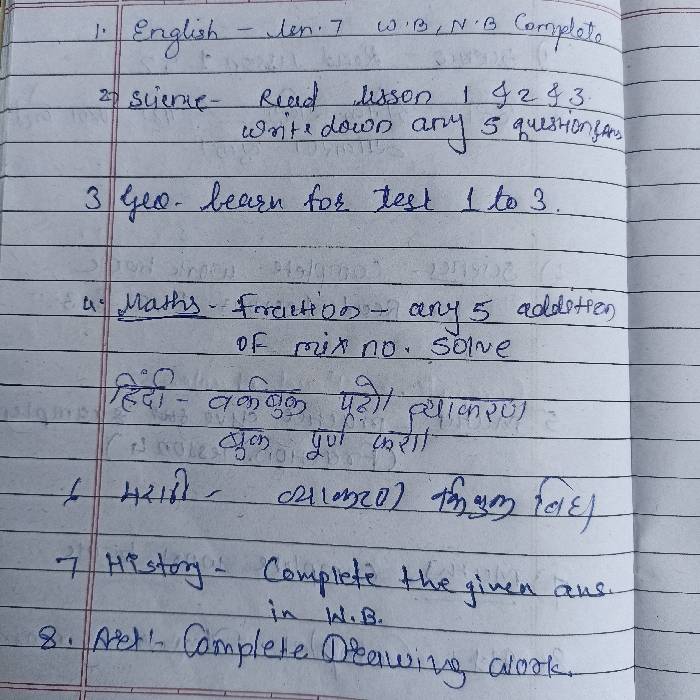 1. English - len. 7 W.B, N.B Complete
2) Science - Read lesson 1 & 2 & 3.
Write down any 5 question & Ans
3 Geo - learn for test 1 to 3.
4. Maths - Fraction - any 5 addition
OF mix no. solve
हिंदी - वर्कबुक पढो। व्याकरण
बुक पूर्ण करो।
6 मराठी - व्याकरण
7 History - Complete the given ans.
in W.B.
8. Art - Complete Drawing work.